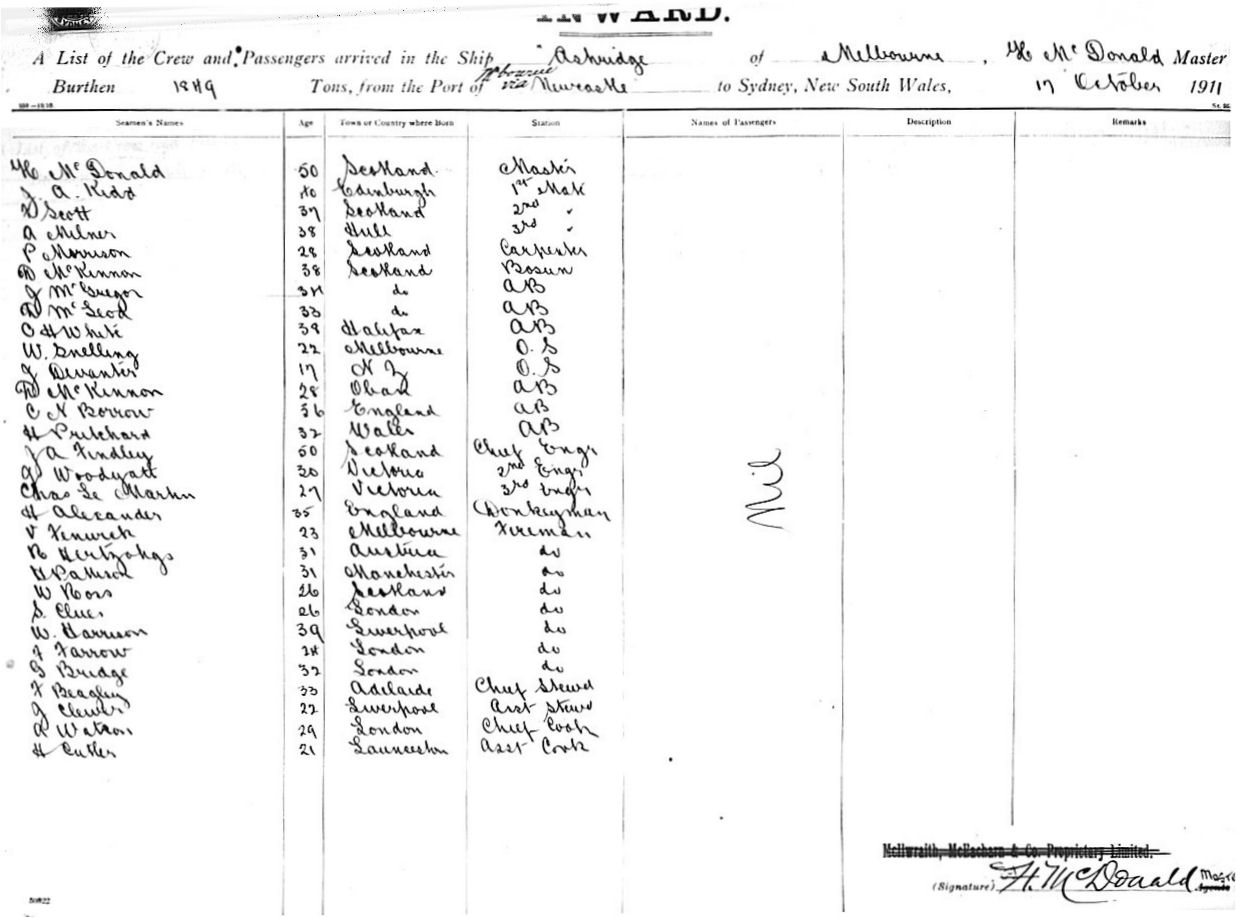 INWARD.
A List of the Crew and Passengers arrived in the Ship "Ashridge of Melbourne, H McDonald Master
Burthen 1849 Tons, from the Port of Mbourne via Newcastle to Sydney, New South Wales, 17 October 1911
Seamen's Names Age Town or Country where Born Station Names of Passengers Description Remarks
H. McDonald 50 Scotland Master
J. A. Kidd 40 Edinburgh 1st Mate
D Scott 37 Scotland 2nd "
A Milner 38 Hull 3rd "
P Morrison 28 Scotland Carpenter
D McKinnon 38 Scotland Bosun
J McGregor 34 do AB
D McLeod 33 do AB
C H White 38 Halifax AB
W. Snelling 22 Melbourne O.S
J Devanter 17 N Z O.S
D McKinnon 28 Oban AB
C N Borrow 56 England AB
H Pritchard 32 Wales AB
J A Findley 50 Scotland Chief Engr
G Woodyatt 30 Victoria 2nd Engr
Chas Le Martin 27 Victoria 3rd Engr
H Alexander 35 England Donkeyman
V Fenwick 23 Melbourne Fireman
R 31 Austria do
Pattison 31 Manchester do
W Ross 26 Scotland do
S. Clues 26 London do
W. Harrison 39 Liverpool do
F Farrow 24 London do
G Bridge 32 London do
F Beagley 33 Adelaide Chief Stewd
J Clewer 22 Liverpool Asst Stewd
R Watson 29 London Chief Cook
H Cutler 21 Launceston Asst Cook
Nil
McIlwraith, McEacharn & Co. Proprietary Limited.
(Signature) H. McDonald Master
Agents
50822